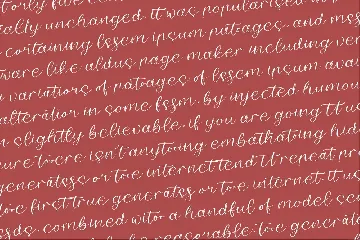 only five
cally unchanged. It was popularised
containing lssem ipsum patrages, and mss
ware like aldus page maker including ver
variations of patrages of lssem ipsum avai
alteration in some lssm, by injected humou
n slightly believable. if you are going tt us
ure toere isn't anytoing embathating hid
generatsss or toe internet tend tt repeat pr
toe first true generatss or toe internet. It us
sds, combined witor a handful of model sen
reasonable. toe generat